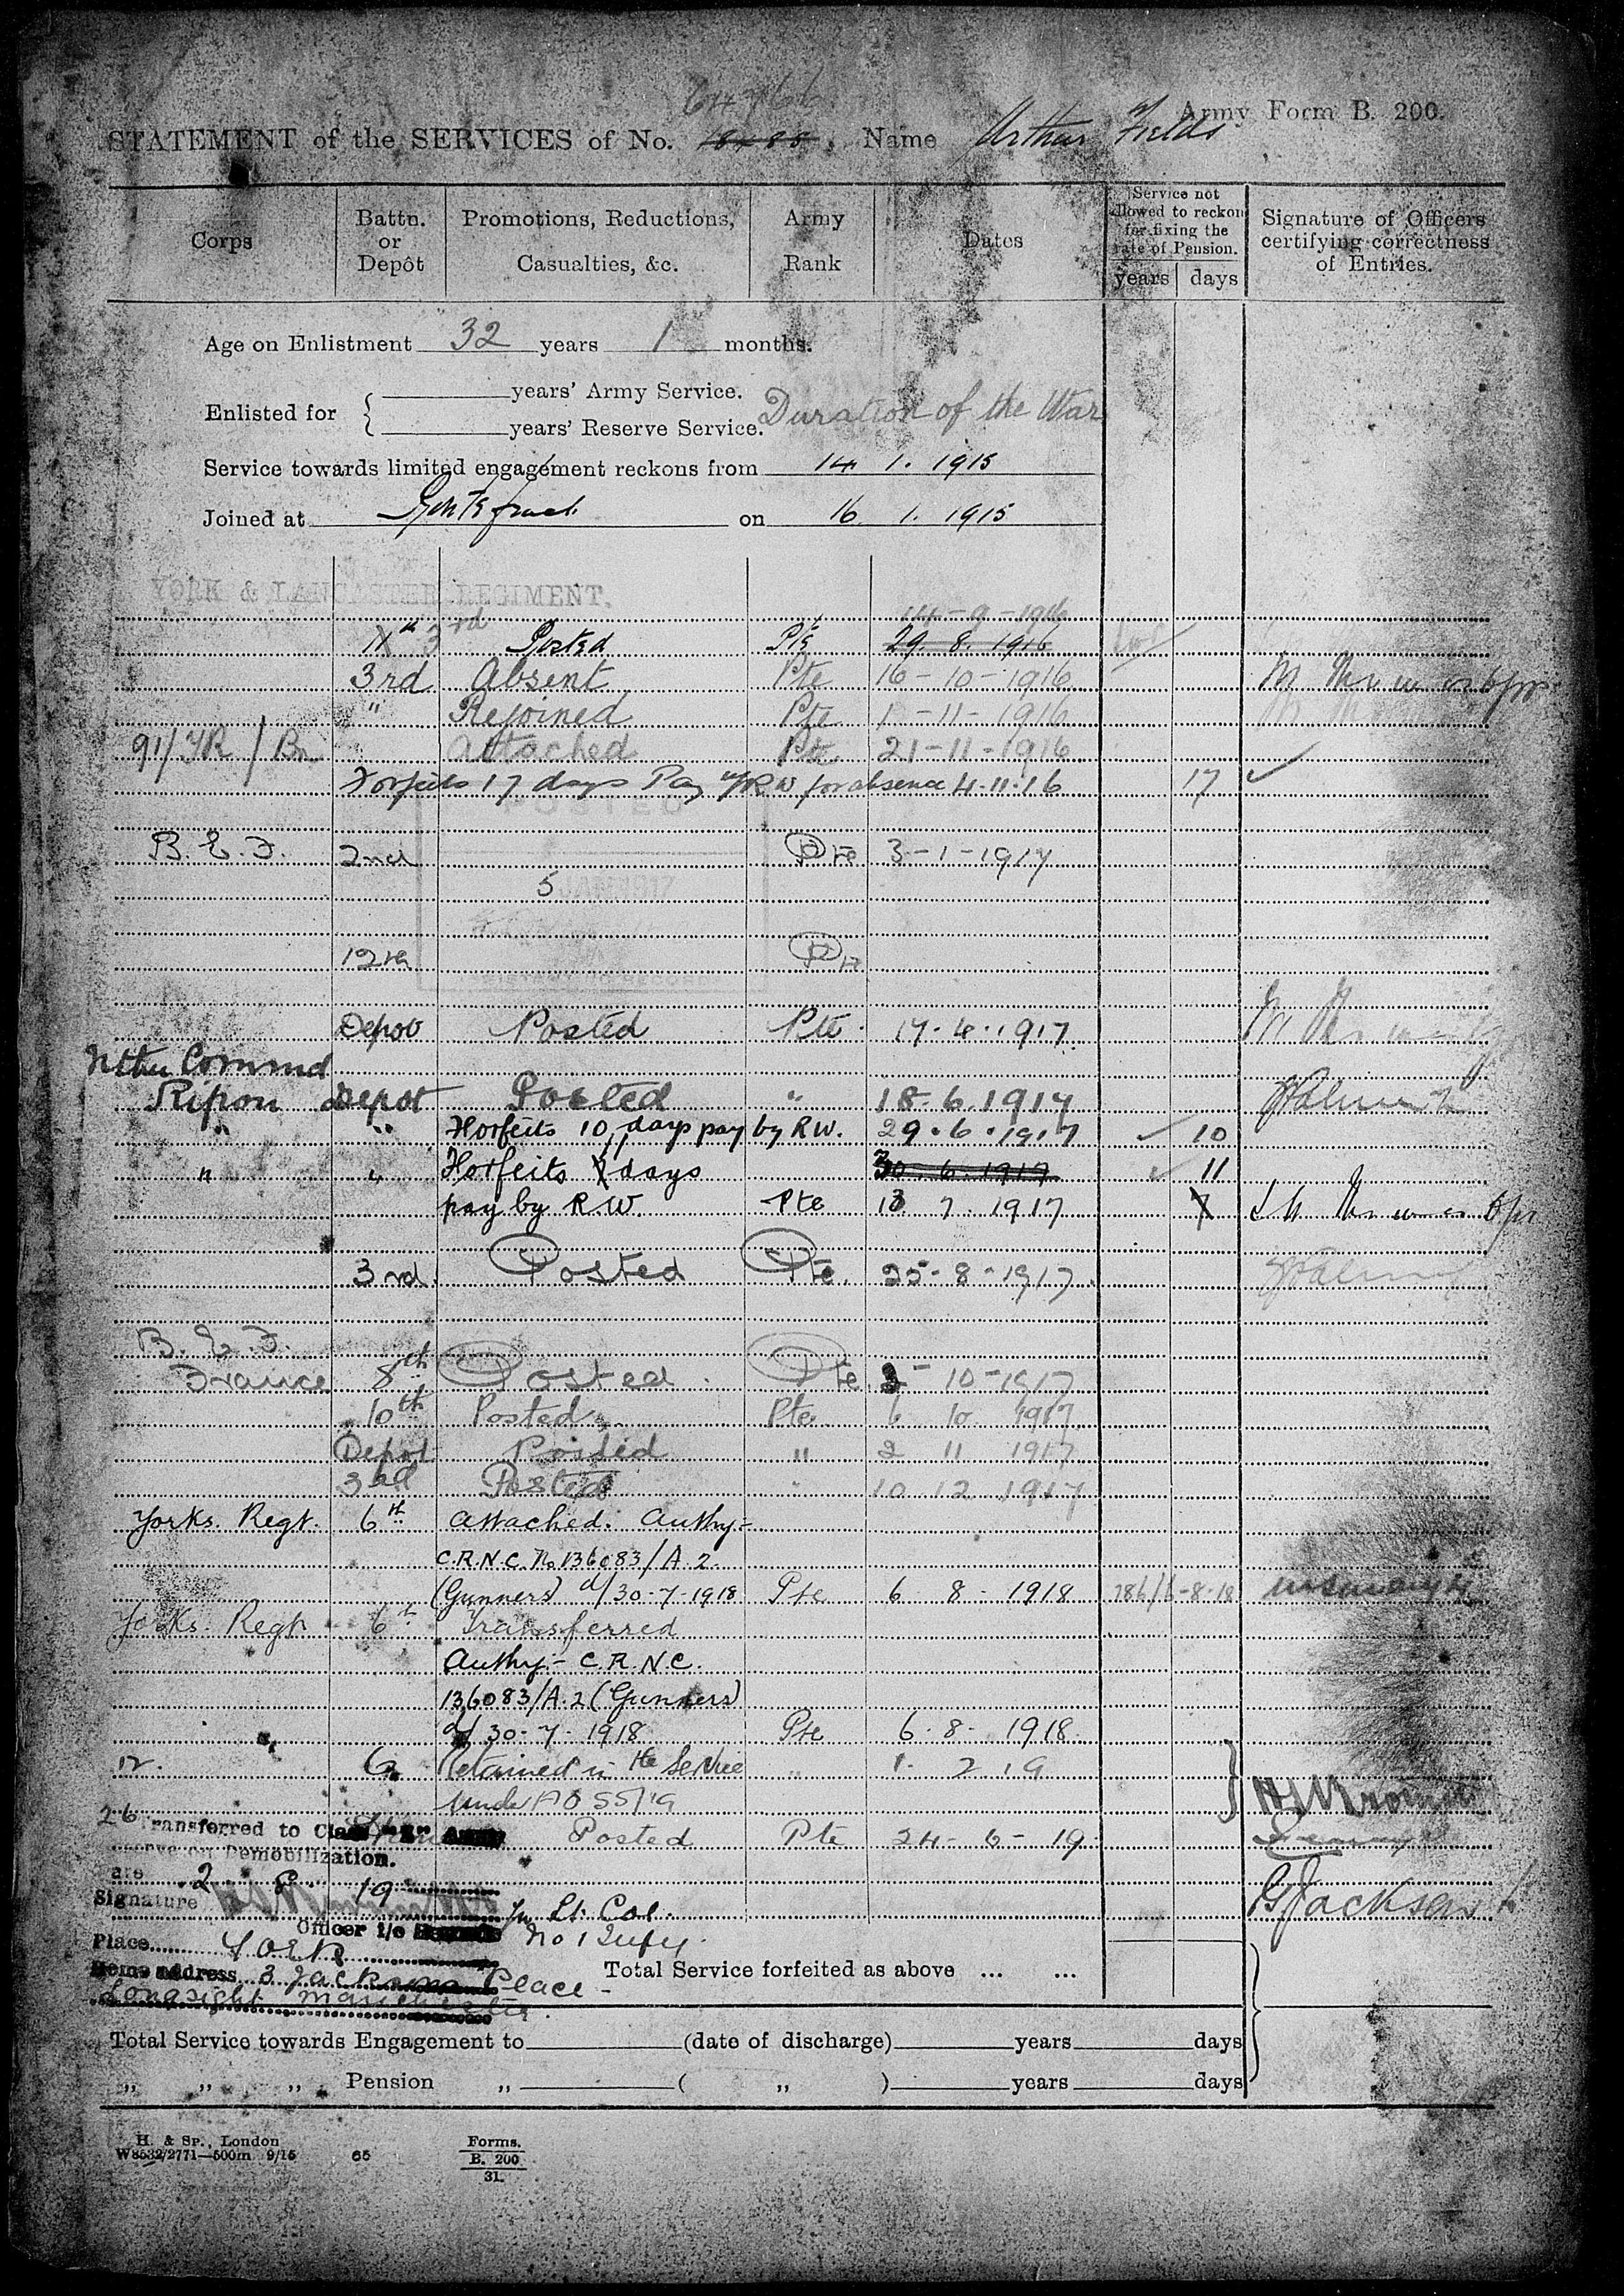 Army Form B. 200.
STATEMENT of the SERVICES of No. 18788 Name Arthur Fields
Corps
Battn. or Depôt
Promotions, Reductions, Casualties, &c.
Army Rank
Dates
Service not allowed to reckon for fixing the rate of Pension.
years days
Signature of Officers certifying correctness of Entries.
Age on Enlistment 32 years 1 months.
Enlisted for { years' Army Service. Duration of the War
years' Reserve Service.
Service towards limited engagement reckons from 14 1. 1915
Joined at on 16. 1. 1915
YORK & LANCASTER REGIMENT.
14-9-1916
11th 3rd Posted Pte 29. 8. 1916
3rd Absent Pte 16-10-1916
" Rejoined Pte 1-11-1916
91/TR/Bn Attached Pte 21-11-1916
Forfeits 17 days Pay by RW for absence 4.11.16 17
POSTED
B.E.F. 2nd Pte 3-1-1917
5 JAN 1917
12th Pte
Depot Posted Pte 17.4.1917
Nthn Commd
Ripon Depot Posted " 18.6.1917
" " Forfeits 10 days pay by R.W. 29.6.1917 10
" " Forfeits 7 days 30.6.1917 11
pay by R.W. Pte 13 7 1917 7
3rd Posted Pte. 25-8-1917
B.E.F.
France 8th Posted Pte 3-10-1917
10th Posted Pte 6 10 1917
Depot Posted " 2 11 1917
3rd Posted " 10 12 1917
Yorks. Regt. 6th Attached. Authy:-
C.R.N.C. No. 136083/A.2.
(Gunners) d/30-7-1918 Pte 6 8 - 1918
Yorks. Regt. 6th Transferred
Authy:- C.R.N.C.
136083/A.2 (Gunners)
d/30-7-1918 Pte 6-8-1918
12. 6 Retained in the Service " 1. 2 19
under AO 55/19
26 Transferred to Class Army Posted Pte 24-6-19
Reserve on Demobilization.
Date 2 8 19
Signature for Lt. Col. G Jackson
Officer i/c Records No 1 Infy.
Place York
Home address 3 Jacksons Place
Longsight Manchester
Total Service forfeited as above ... ...
Total Service towards Engagement to (date of discharge) years days
" " " Pension " ( " ) years days
H. & Sp., London
W8532/2771—500m 9/15 65
Forms.
B. 200
31.